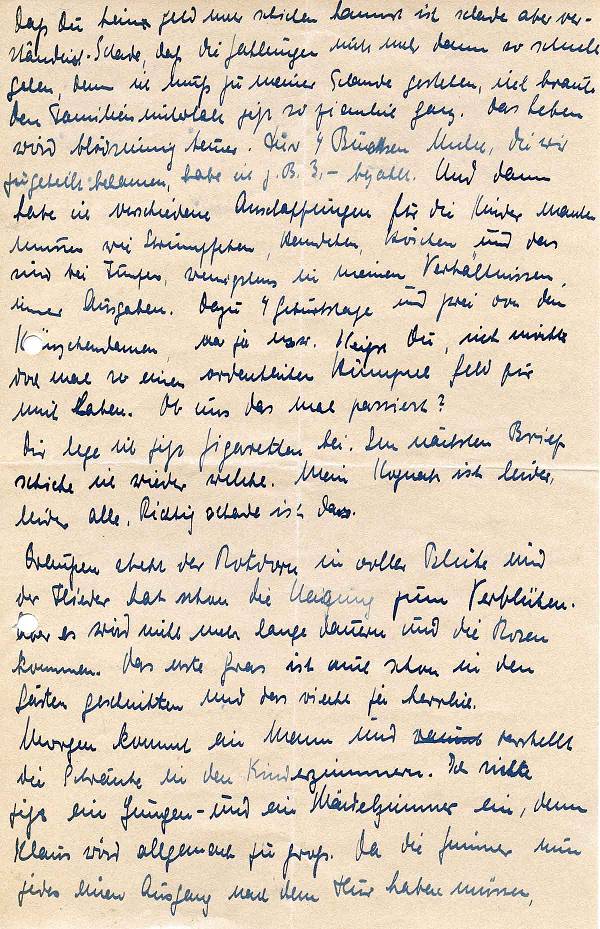 Daß Du kein Geld mehr schicken kannst ist schade aber ver-
ständlich. Schade, daß die Zahlungen nicht mehr dann so schnell
gehen, denn ich muß zu meiner Schande gestehen, ich brauche
den Familienunterhalt jetzt so ziemlich ganz. Das Leben
wird blödsinnig teurer. Für 4 Büchsen Milch, die wir
zugeteilt bekamen, habe ich z. B. 3,- bezahlt. Und dann
habe ich verschiedene Anschaffungen für die Kinder machen
müssen wie Strümpfchen, Hemdchen, Höschen und das
sind bei fünfen, wenigstens in meinen Verhältnissen,
immer Ausgaben. Dazu 4 Geburtstage und zwei von den
na ja usw. Du, ich möchte
doch mal so einen ordentlichen Geld für
mich haben. Ob uns das mal passiert?
Dir lege ich jetzt Zigaretten bei. Im nächsten Brief
schicke ich wieder welche. Mein Kognak ist leider,
leider alle. Richtig schade ist das.
Draußen steht der Rotdorn in voller Blüte und
der Flieder hat schon die Neigung zum Verblühen.
Aber es wird nicht mehr lange dauern und die Rosen
kommen. Das erste Gras ist auch schon in den
Gärten geschnitten und das riecht so herrlich.
Morgen kommt ein Mann und verstellt
die Schränke in den Kinderzimmern. Ich richte
jetzt ein Jungen- und ein Mädelzimmer ein, denn
Klaus wird allgemach zu groß. Da die Zimmer nun
jedes einen Ausgang nach dem Flur haben müssen,